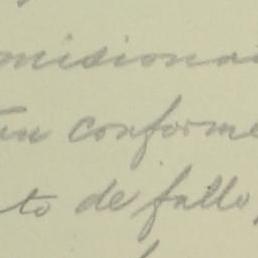 misiona
en conforme
to de fallo,